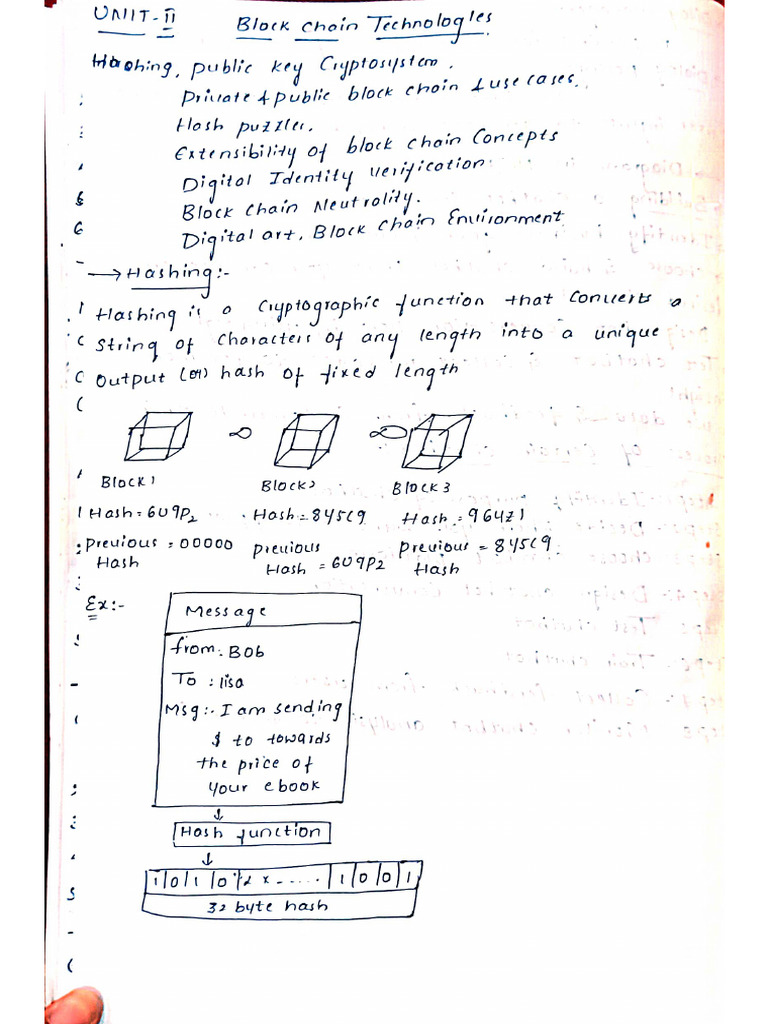 UNIT-II Block chain Technologies.
Hashing, public key Cryptosystem.
Private & public block chain & use cases.
Hash puzzles.
Extensibility of block chain Concepts
Digital Identity verification
Block chain Neutrality.
Digital art, Block chain Environment
→ Hashing:-
Hashing is a Cryptographic function that converts a
string of characters of any length into a unique
output (or) hash of fixed length
Block1 Block2 Block3
Hash=6U9P2 Hash=845C9 Hash=964Z1
Previous Hash =00000 previous Hash =6U9P2 Previous Hash =845C9
Ex:-
Message
from: Bob
To : lisa
Msg:- I am sending
$ to towards
the price of
your ebook
Hash function
1 0 1 0 1 2 x ...... 1 0 0 1
32 byte hash